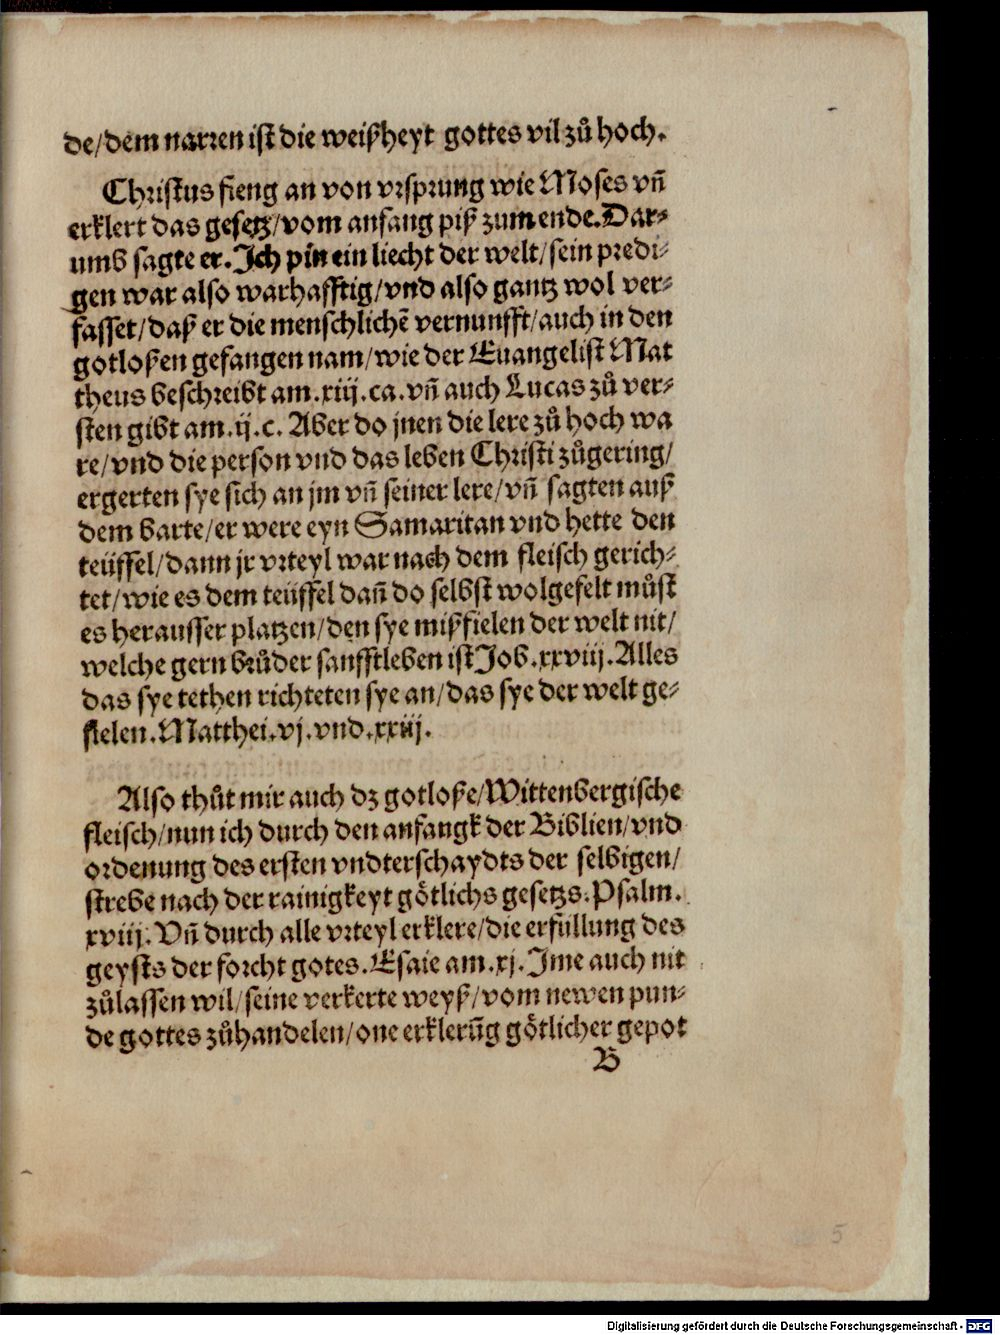 de/dem narren ist die weißheyt gottes vil zů hoch.
Christus fieng an von vrsprung wie Moses vñ
erklert das gesetz/vom anfang piß zum ende. Dar-
umb sagte er. Ich pin ein liecht der welt/sein predi-
gen war also warhafftig/vnd also gantz wol ver-
fasset/daß er die menschlichẽ vernunfft/auch in den
gotloßen gefangen nam/wie der Euangelist Mat
theus beschreibt am .xiij. ca. vñ auch Lucas zů ver-
sten gibt am .ij. c. Aber do jnen die lere zů hoch wa
re/vnd die person vnd das leben Christi zůgering/
ergerten sye sich an jm vñ seiner lere/vñ sagten auß
dem barte/er were eyn Samaritan vnd hette den
teüffel/dann jr vrteyl war nach dem fleisch gerich-
tet/wie es dem teüffel dañ do selbst wolgefelt můst
es herausser platzen/den sye mißfielen der welt nit/
welche gern brůder sanfftleben ist Job .xxviij. Alles
das sye tethen richteten sye an/das sye der welt ge-
fielen. Matthei .vj. vnd .xxiij.
Also thůt mir auch dz gotloße/Wittenbergische
fleisch/nun ich durch den anfangk der Biblien/vnd
ordenung des ersten vndterschaydts der selbigen/
strebe nach der rainigkeyt götlichs gesetzs. Psalm.
xviij. Vñ durch alle vrteyl erklere/die erfüllung des
geysts der forcht gotes. Esaie am .xj. Jme auch nit
zůlassen wil/seine verkerte weyß/vom newen pun-
de gottes zůhandelen/one erklerũg götlicher gepot
B
5
Digitalisierung gefördert durch die Deutsche Forschungsgemeinschaft - DFG